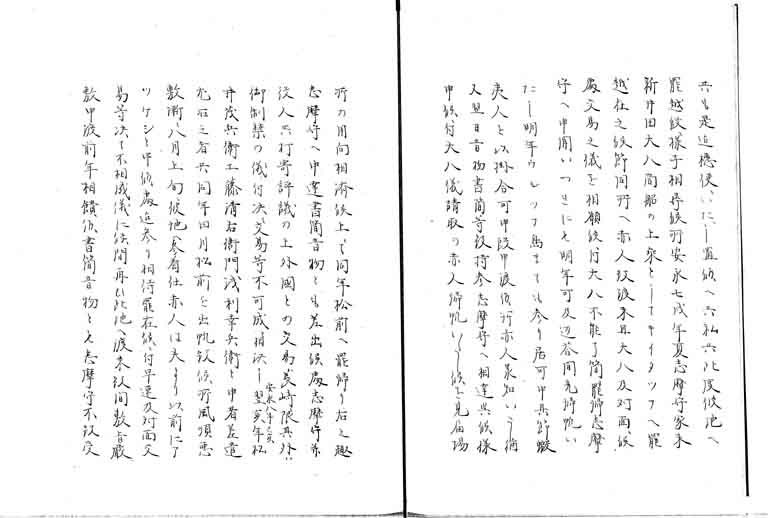 共も是迄穏使いたし置候へ共私共此度彼地へ
罷越候様子相尋候所安永七戌年夏志摩守家来
新井田大八間船の上乗としてキイタツフへ罷
越仕之候節同所へ赤人致渡来且大八及対面候
處交易之儀を相願候付大八不能了簡罷帰志摩
守へ申聞いつきにも明年可及返答間先帰帆い
たし明年ウルツフ島まても参り居可申其節蝦
夷人と以掛合可申段申渡候所赤人承知いたし猶
又翌日音物書簡等致持参志摩守へ相達呉候様
申候付大八儀請取の赤人帰帆いたし候を見届場
所の用向相済候上にて同年松前へ罷帰り右之趣
志摩守へ申達書簡音物とも差出候處志摩守并
役人共打寄評議の上外国との交易長崎限其外は
御制禁の儀付決交易等不可成相決し安永八年亥翌亥年松
井茂兵衛工藤清右衛門浅利幸兵衛と申者差遣
尤右之者共同年四月松前を出帆致候所風順悪
敷漸八月上旬彼地へ参着仕赤人は夫より以前に
ツケシと申候處迄参り相待罷在候付早速及対面交
易等決て不相成儀に候間再ひ此地へ渡来致間敷旨厳
敷申渡前年相贈候書簡音物とも志摩守不致受